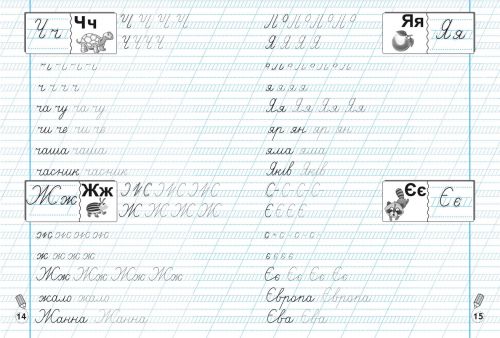 Ч ч Чч
Ч Ч Ч Ч
ч ч ч ч
ча чу ча чу
чи че чи че
чаша чаша
часник часник
Ж ж Жж
Ж Ж Ж Ж
ж ж ж ж ж
ж ж ж ж ж
Жж Жж Жж Жж
жало жало
Жанна Жанна
14
Яя Я я
Я Я Я Я
я я я я
Яя Яя Яя Яя
яр ян яр ян
яма яма
Яків Яків
Єє Є є
Є Є Є Є
є є є є
Єє Єє Єє Єє
Європа Європа
Єва Єва
15